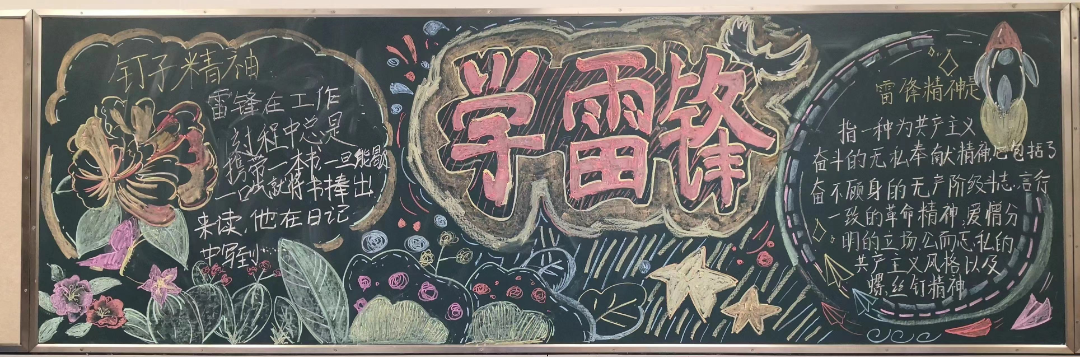 钉子精神
雷锋在工作
过程中总是
携带一本书,一旦能歇
一口气就将书捧出
来读,他在日记
中写到:
学雷锋
雷锋精神是
指一种为共产主义
奋斗的无私奉献精神,它包括了
奋不顾身的无产阶级斗志,言行
一致的革命精神,爱憎分
明的立场,公而忘私的
共产主义风格以及
螺丝钉精神